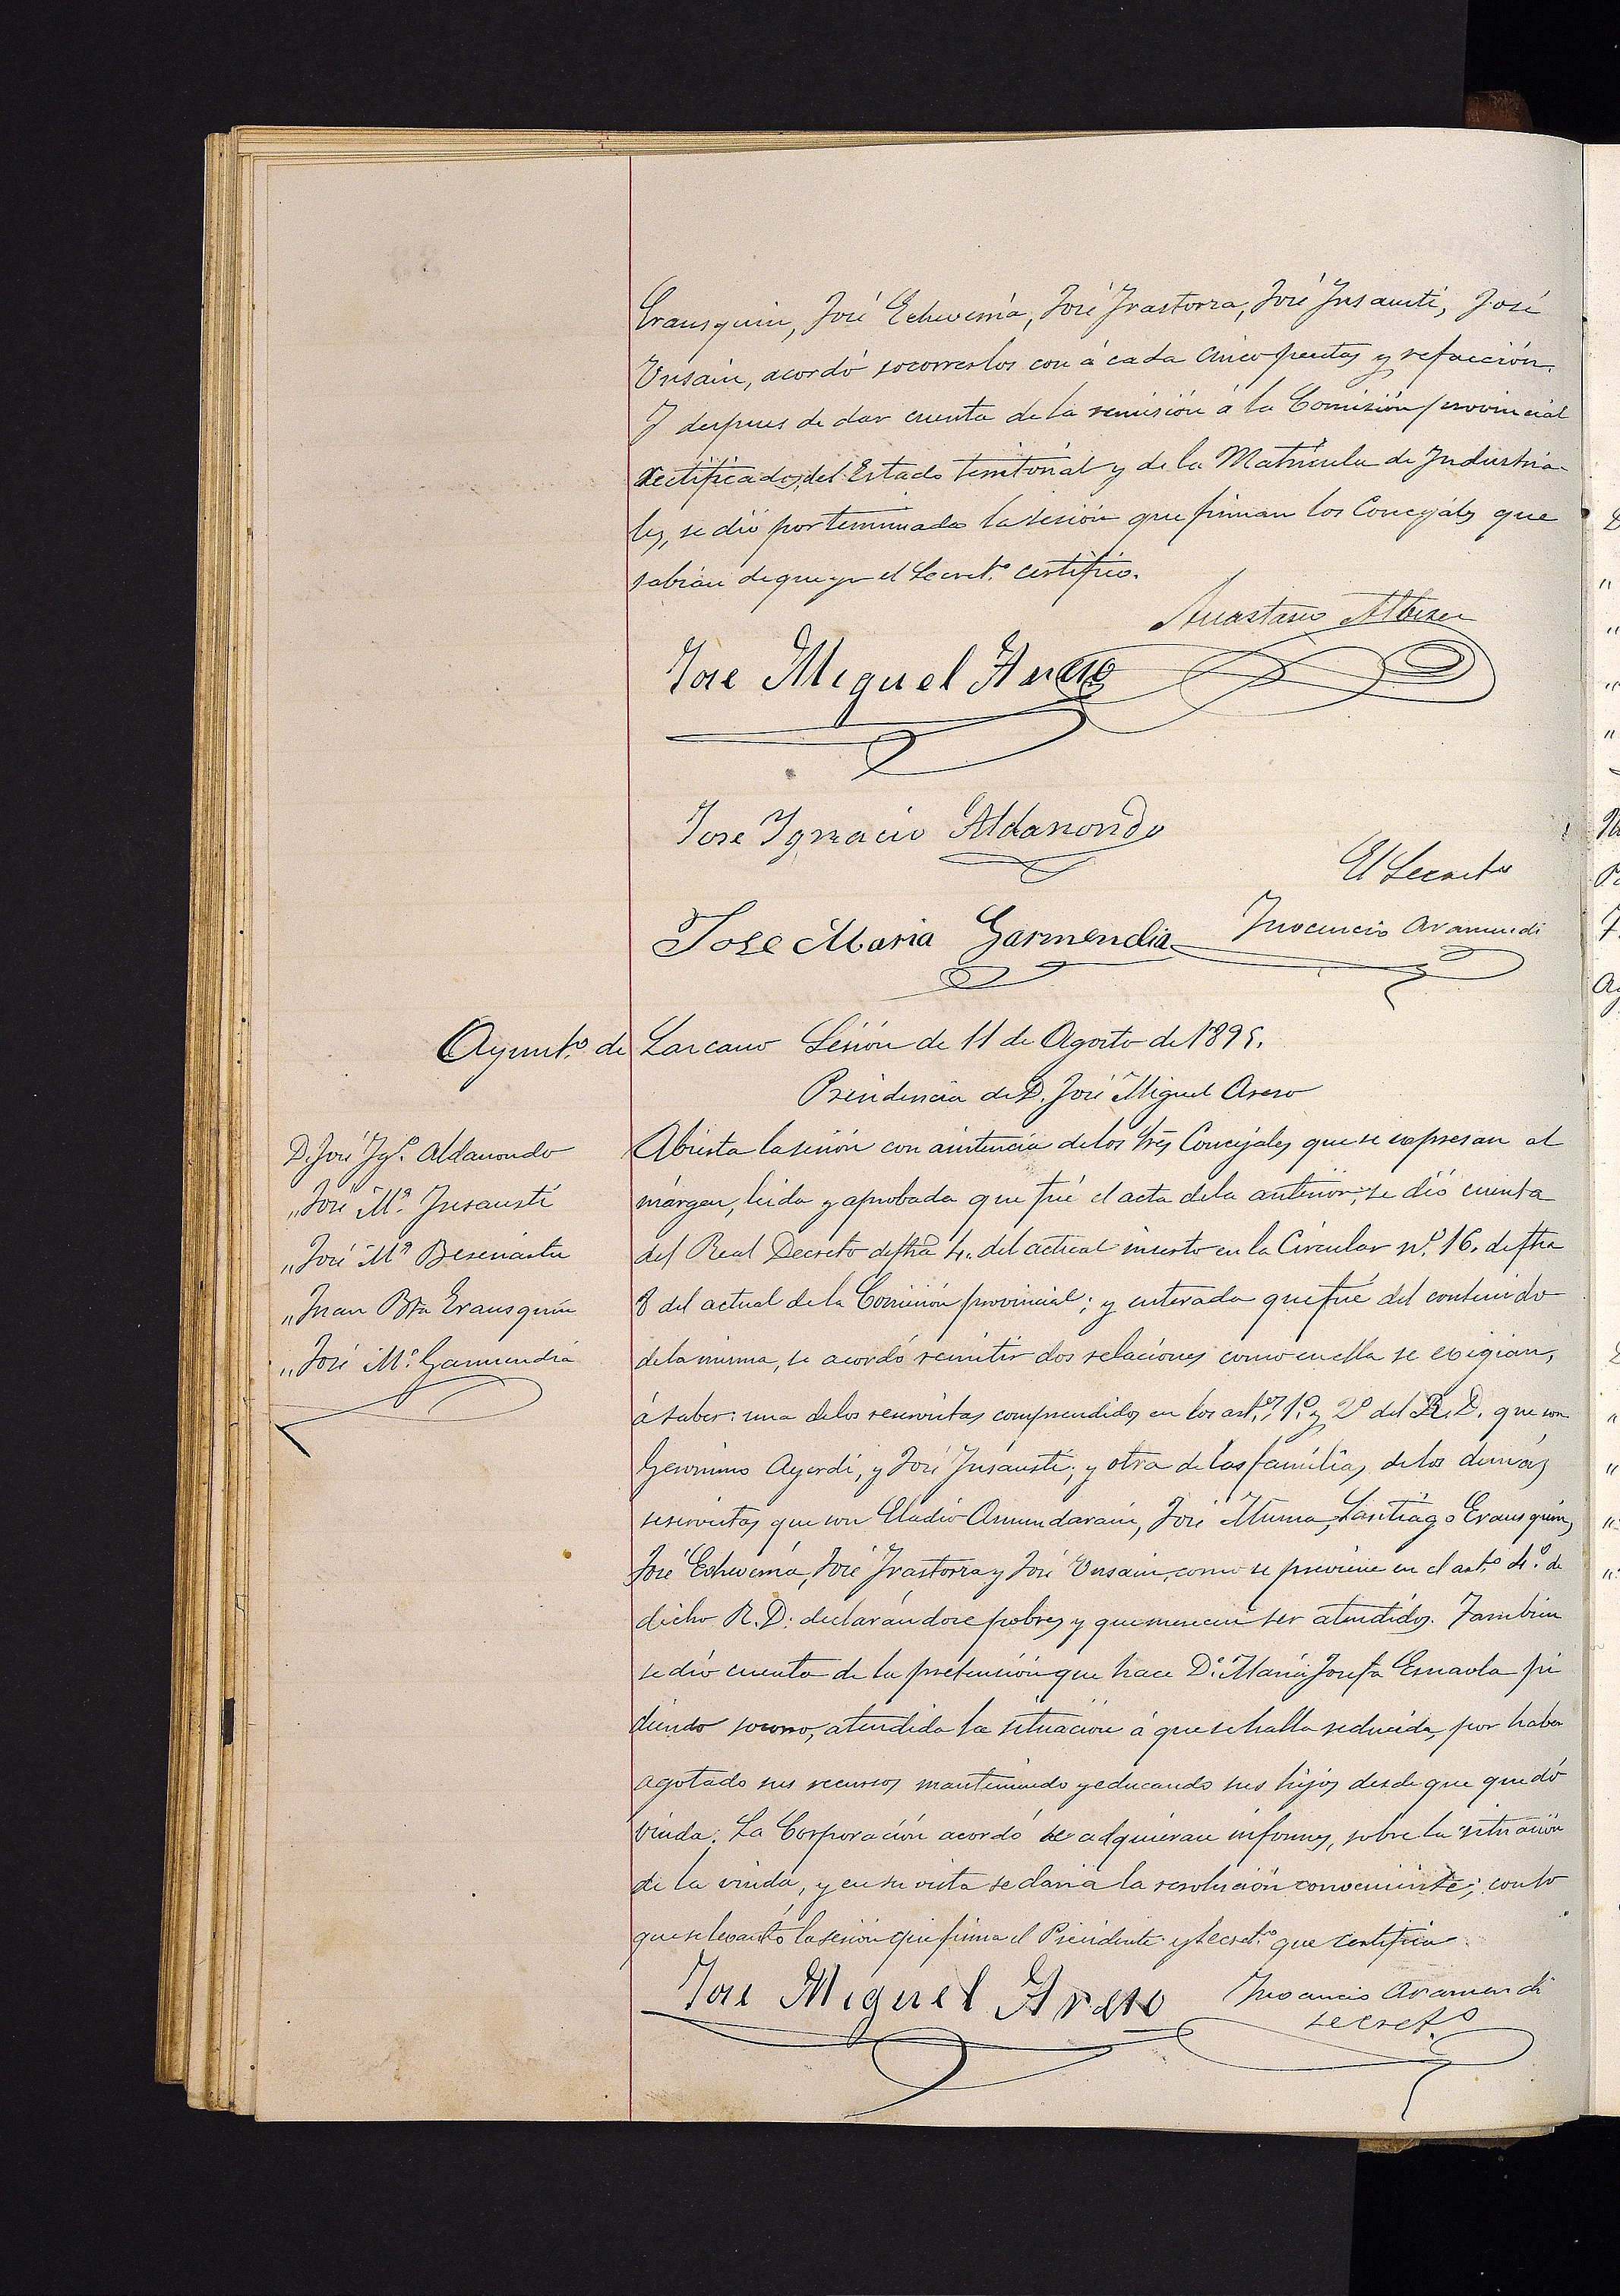 Erausquin, José Echeverria, José Irastorza, José Insausti, José
Unsain, acordó socorrerlos con á cada cinco pesetas y refacción.
Y despues de dar cuenta de la remisión á la Comisión provincial
rectificados, del Estado territorial y de la Matricula de Industria-
les, se dió por terminada la sesión que firman los Concejales que
sabian de que yo el Secret.º certifico.
Anastasio Albizu
Jose Miguel Areso
Jose Ignacio Aldanondo
El Secretº
Jose Maria Garmendia
Inocencio Aramendi
Ayunt.º de Lazcano Sesión de 11 de Agosto de 1895.
Presidencia de D. José Miguel Areso
D. José Igº. Aldanondo
„ José Mª. Insausti
„ José Mª
„ Juan Bta Erausquin
„ José Mª. Garmendia
Abierta la sesión con asistencia de los Srês Concejales que se expresan al
márgen, leida y aprobada que fué el acta de la anterior, se dió cuenta
del Real Decreto de fhâ 4. del actual inserto en la Circular nº. 16. de fha
8 del actual de la Comisión provincial; y enterada que fué del contenido
de la misma, se acordó remitir dos relaciones como en ella se exigian,
á saber: una de los reservistas comprendidos en los artº.s 1º. y 2º del R.D. que son
Geronimo Ayerdi, y José Insausti; y otra de las familias de los demás
reservistas que son Eladio Amundarain, José Iturrioz, Santiago Erausquin,
José Echeverria, José Irastorza y José Unsain, como se previene en el artº 4.º de
dicho R.D. declarándose pobres y que merecen ser atendidos. Tambien
se dió cuenta de la pretensión que hace Dª. Maria Josefa Esnaola pi
diendo socorro, atendida la situación á que se halla reducida, por haber
agotado sus recursos manteniendo y educando sus hijos desde que quedó
viuda. La Corporación acordó se adquieran informes, sobre la situación
de la viuda, y en su vista se daria la resolución conveniente; con lo
que se levantó la sesión que firma el Presidente y Secret.º que certifica.
José Miguel Areso
Inocencio Aramendi
secretº